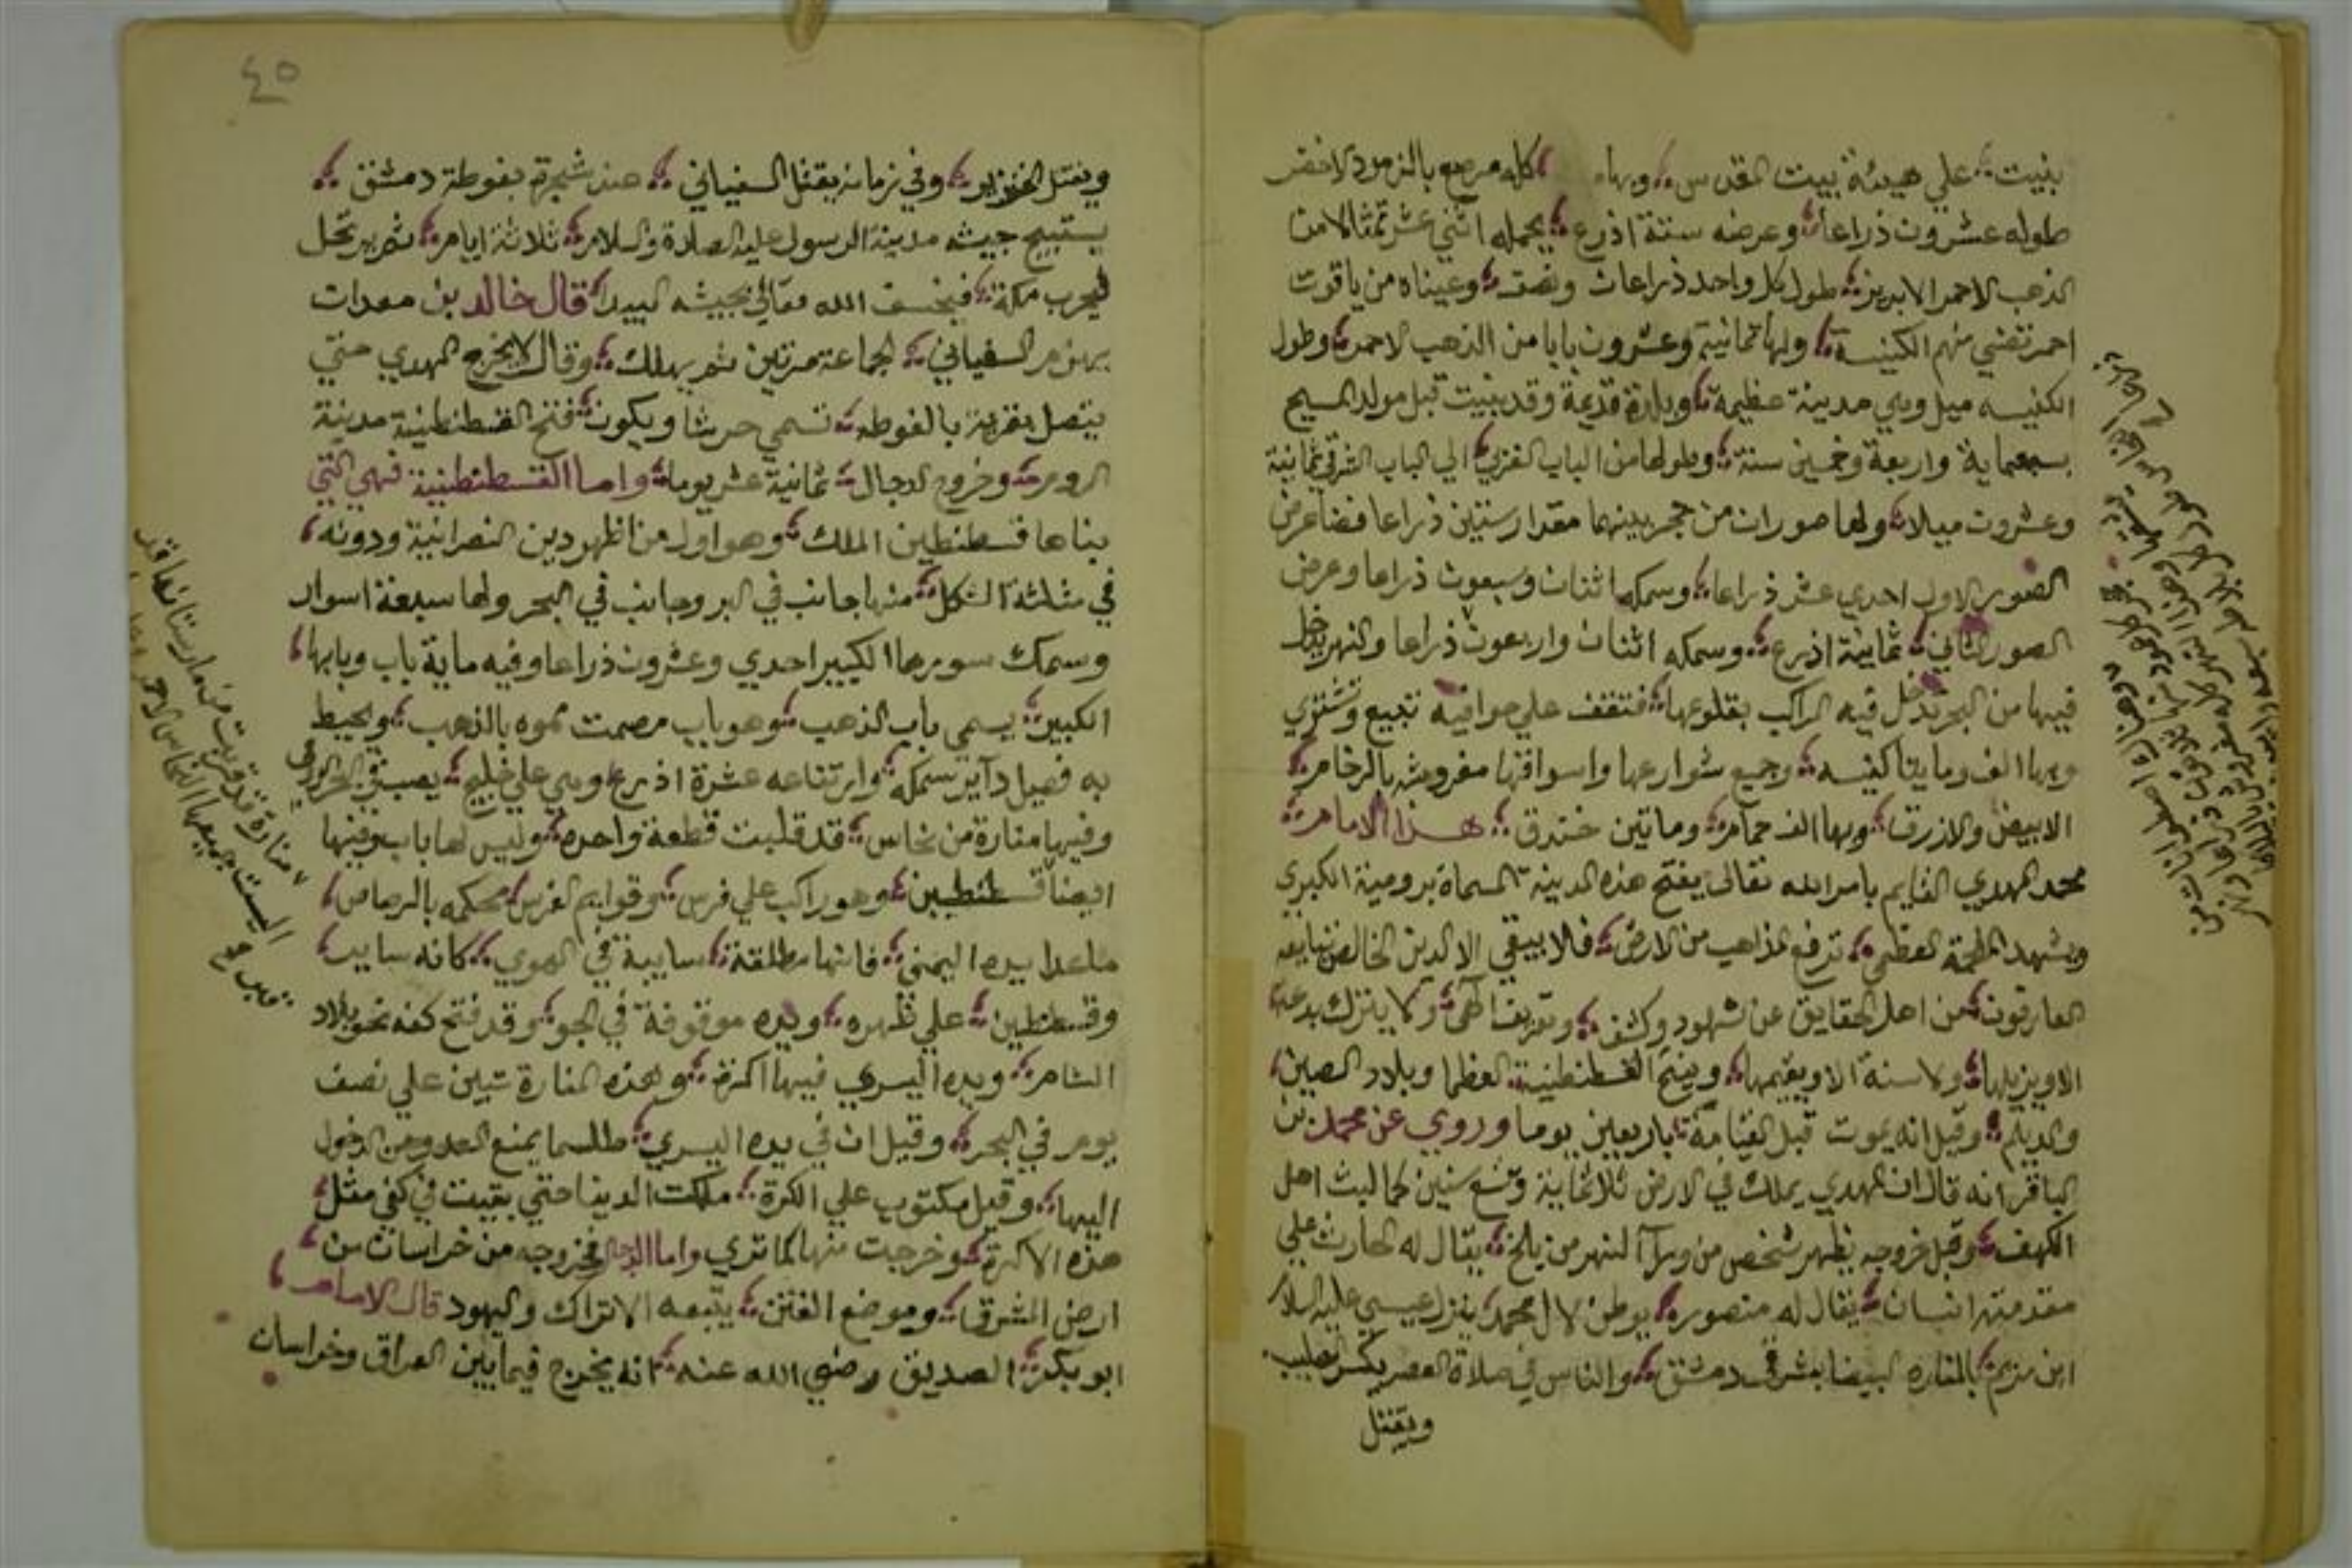 بنيت على هيئة بيت المقدس وبها كله مرصع بالزمرد الاخضر
طوله عشرون ذراعا وعرضه ستة اذرع يحمله اثني عشر تمثالا من
الذهب الاحمر الابريز طول كل واحد ذراعان ونصف وعيناه من ياقوت
احمر تضي منهم الكنيسة ولها ثمانية وعشرون بابا من الذهب الاحمر وطول
الكنيسه ميل وهي مدينة عظيمة وبلدة قديمة وقد بنيت قبل مولد المسيح
بسبعماية واربعة وخمسين سنة وطولها من الباب الغربي الي الباب الشرقي ثمانية
وعشرون ميلا ولها صوران من حجر بينهما مقدار ستين ذراعا فضا عرض
الصور الاول احدي عشر ذراعا وسمكه اثنان وسبعون ذراعا وعرض
الصور الثاني ثمانية اذرع وسمكه اثنان واربعون ذراعا والنهر يدخل
فيها من البحر تدخل فيه المراكب بقلوعها فتقف علي حوافيه تبيع وتشتري
وبها الف ومايتا كنيسه وجميع شوارعها واسواقها مفروشه بالرخام
الابيض والازرق وبها الف حمام وماتين خندق هذا الامام
محمد المهدي القايم بامر الله تعالى يفتح هذه المدينه المسماة برومية الكبري
ويشهد الملحمة العظمي ترفع المذاهب من الارض فلا يبقي الا الدين الخالص يبايعه
العارفون من اهل الحقايق عن شهود وكشف وتعريف الهي ولا يترك بدعة
الا ويزيلها ولا سنة الا ويقيمها ويفتح القسطنطنية العظما وبلاد الصين
والديلم وقيل انه يموت قبل القيامة باربعين يوما وروي عن محمد بن
الباقر انه قال ان المهدي يملك في الارض ثلاثماية وتسع سنين كما لبث اهل
الكهف وقبل خروجه يظهر شخص من ورآ النهر من بلخ يقال له الحارث علي
مقدمته انسان يقال له منصوره يوطن لال محمد ينزل عيسى عليه السلام
ابن مريم بالمناره البيضا بشرقي دمشق والناس في صلاة العصر يكسر الصليب
ويقتل
٤٥
ويقتل الخنزير وفي زمانه يقتل السفياني عند شجرة بغوطة دمشق
يستبيح جيشه مدينة الرسول عليه الصلاة والسلام ثلاثة ايام ثم يرتحل
ليخرب مكة فيخسف الله تعالى بجيشه البيدا قال خالد بن معدان
يهزم السفياني الجماعة مرتين ثم يهلك وقال لا يخرج المهدي حتي
يتصل بقرية بالغوطه تسمي حرشا ويكون فتح القسطنطنية مدينة
الروم وخروج الدجال ثمانية عشر يوما واما القسطنطنية فهي التي
بناها قسطنطين الملك وهو اول من اظهر دين النصرانية ودونه
في مثلثة الشكل منها جانب في البر وجانب في البحر ولها سبعة اسوار
وسمك سورها الكبير احدي وعشرون ذراعا وفيه ماية باب وبابها
الكبير يسمي باب الذهب وهو باب مصمت مموه بالذهب ويحيط
به فصيل داير سمكه وارتفاعه عشرة اذرع وهي علي خليج يصب في البحر الرومي
وفيها منارة من نحاس قد قلبت قطعة واحده وليس لها باب وفيها
ايضا قسطنطين وهو راكب علي فرس وقوايم الفرس محكمه بالرصاص
ما عدا يده اليمني فانها مطلقة سايبة في الهوي كانه ساير
وقسطنطين علي ظهره ويده موقوفة في الجو وقد فتح كفه نحو بلاد
الشام ويده اليسري فيها اكرة وهذه المنارة تبين علي نصف
يوم في البحر وقيل ان في يده اليسري طلسما يمنع العدو من الدخول
اليها وقيل مكتوب علي الكرة ملكت الدنيا حتي بقيت في كفي مثل
هذه الاكرة وخرجت منها كما تري واما الدجال فخروجه من خراسان من
ارض المشرق وموضع الفتن يتبعه الاتراك واليهود قال الامام
ابو بكر الصديق رضي الله عنه انه يخرج فيما بين العراق وخراسان
منارة قد قربت من مارستانها قد